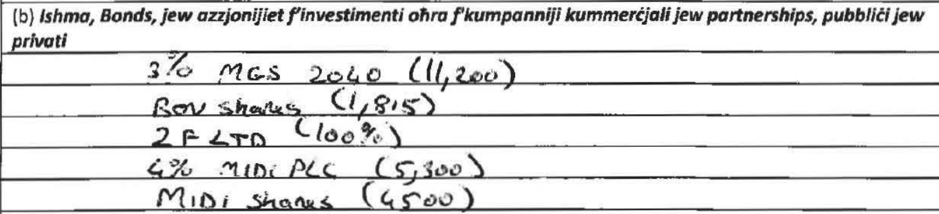 (b) Ishma, Bonds, jew azzjonijiet f'investimenti oħra f'kumpanniji kummerċjali jew partnerships, pubbliċi jew
privati
3% MGS 2040 (11,200)
BOV shares (1,815)
2F LTD (100%)
4% MIDI PLC (5,300)
MIDI shares (4500)